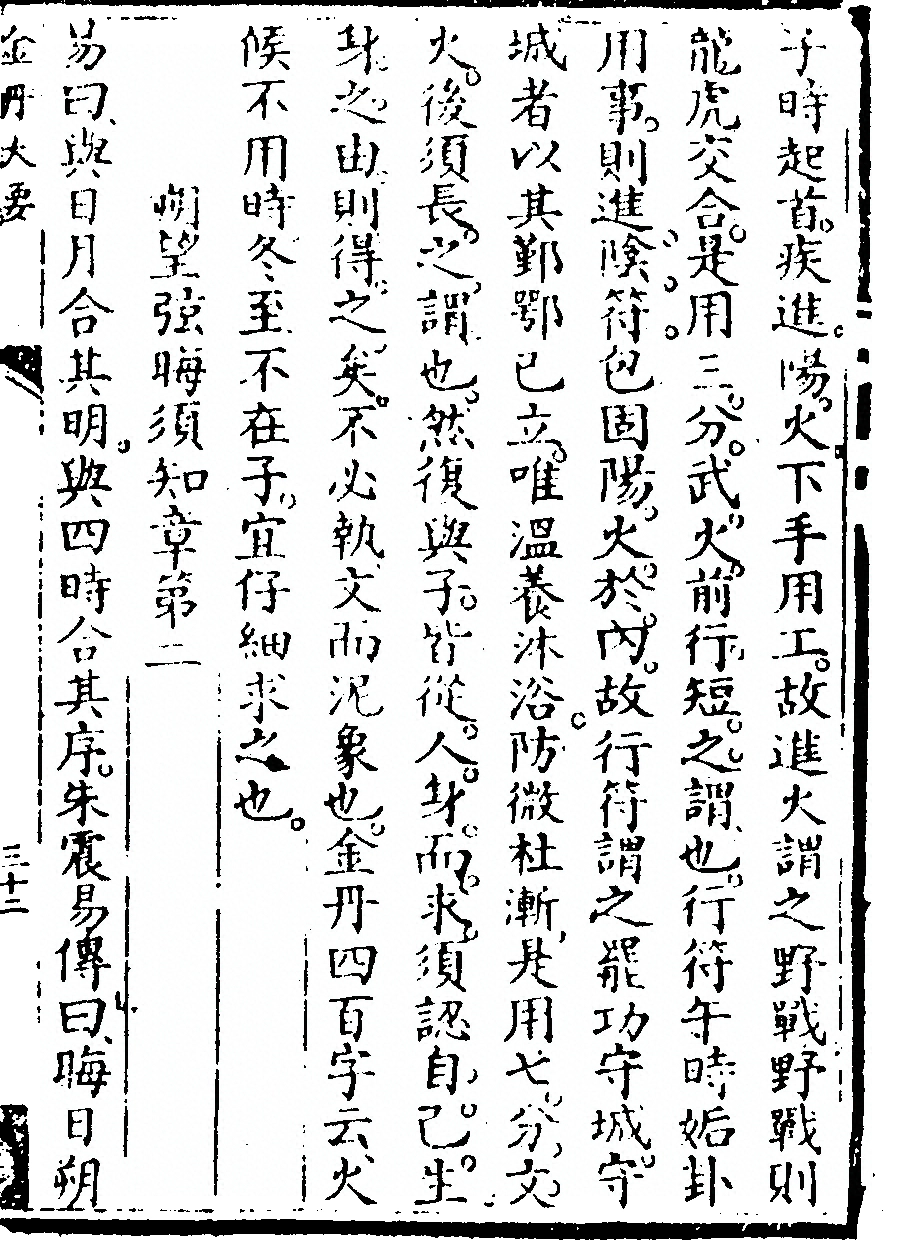 子時起首。疾進陽火下手用工。故進火謂之野戰野戰則
龍虎交合。是用三分。武火前行短之謂也。行符午時姤卦
用事。則進陰符包固陽火於內。故行符謂之罷功守城。守
城者以其鄞鄂已立。唯溫養沐浴。防微杜漸是用七分文
火。後須長之謂也。然復與子。皆從人身而求須認自己生
身之由則得之矣。不必執文而泥象也。金丹四百字云火
候不用時冬至不在子。宜仔細求之也。
朔望弦晦須知章第二
易曰與日月合其明。與四時合其序。朱震易傳曰晦日朔
金丹大要
三十二